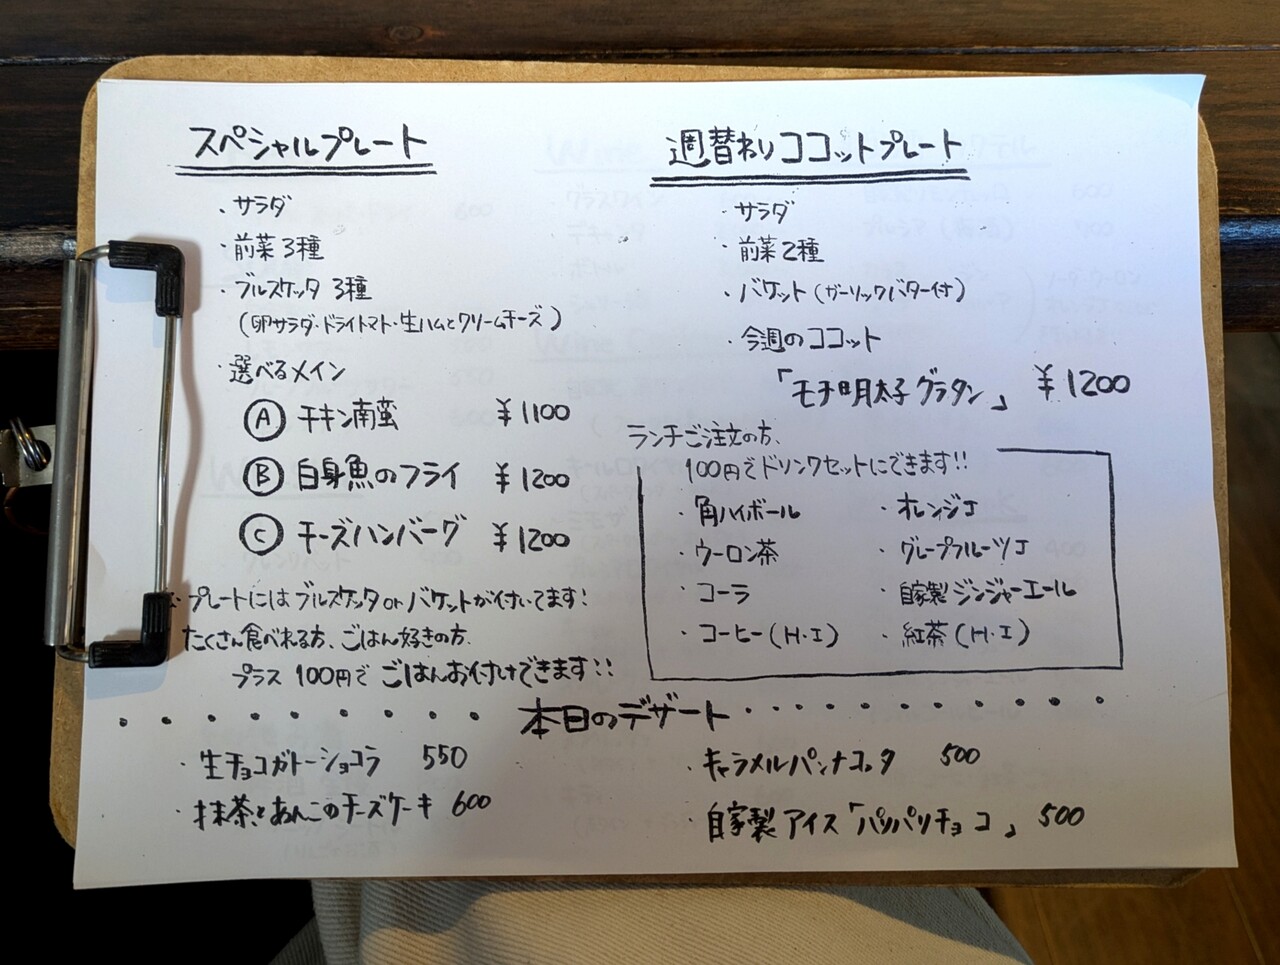 スペシャルプレート
・サラダ
・前菜3種
・ブルスケッタ 3種
(卵サラダ・ドライトマト・生ハムとクリームチーズ)
・選べるメイン
Ⓐ チキン南蛮 ¥1100
Ⓑ 白身魚のフライ ¥1200
Ⓒ チーズハンバーグ ¥1200
プレートにはブルスケッタorバケットが付いてます!
たくさん食べれる方、ごはん好きの方、
プラス 100円で ごはんお付けできます!!
週替わりココットプレート
・サラダ
・前菜2種
・バケット(ガーリックバター付)
・今週のココット
「モチ明太子グラタン」 ¥1200
ランチご注文の方、
100円でドリンクセットにできます!!
・角ハイボール ・オレンジJ
・ウーロン茶 ・グレープフルーツJ
・コーラ ・自家製ジンジャーエール
・コーヒー(H・I) ・紅茶(H・I)
本日のデザート
・生チョコガトーショコラ 550
・抹茶とあんこのチーズケーキ 600
・キャラメルパンナコッタ 500
・自家製アイス「パリパリチョコ」 500